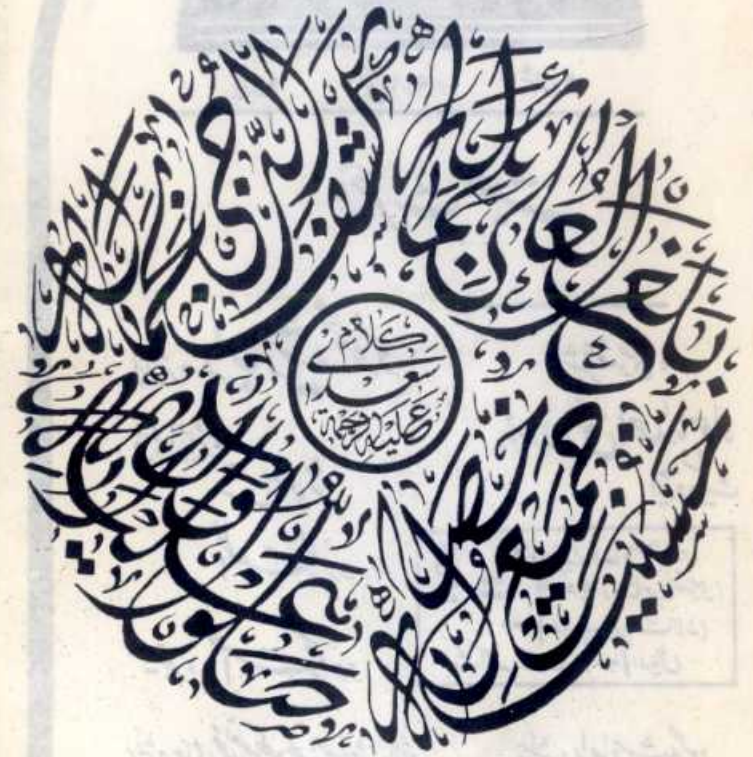 بلغ العلى بكماله
كشف الدجى بجماله
حسنت جميع خصاله
صلوا عليه و آله
كلام
سعدي
عليه رحمة